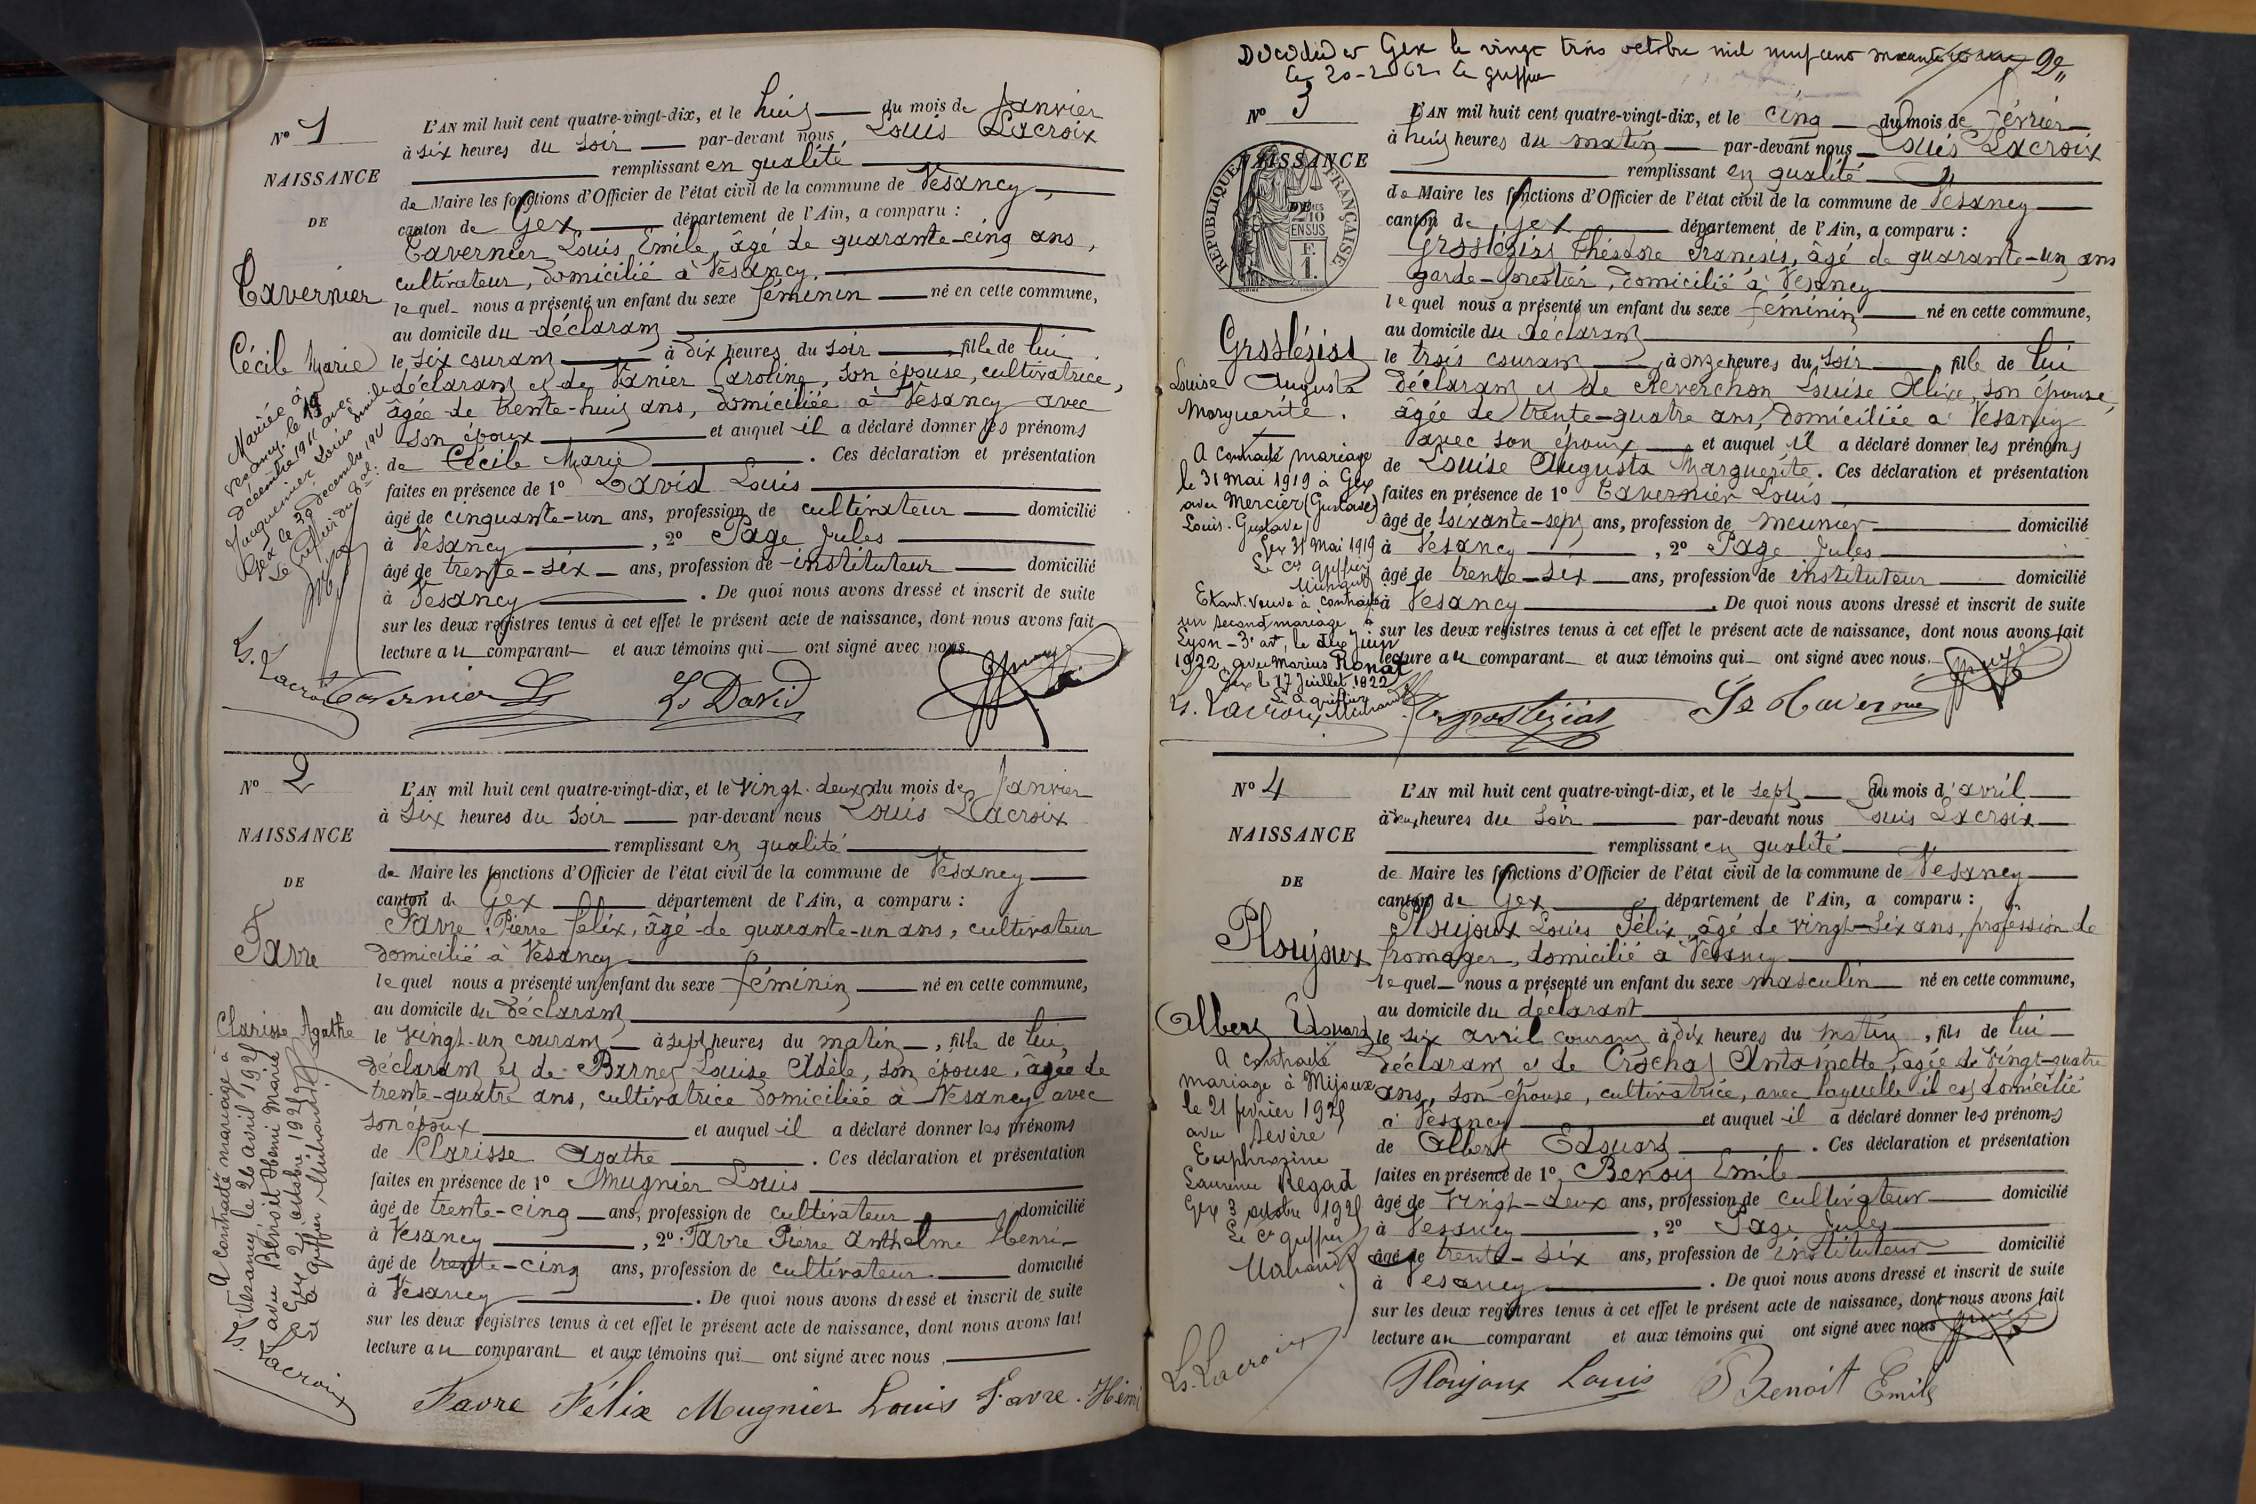 N° 1
NAISSANCE
DE
Tavernier
Cécile Marie
Mariée à
Vesancy, le 19
décembre 1911 avec
Juquenier Louis Emile
Gex le 30 décembre 1911
Le Greffier du Tal.
L'AN mil huit cent quatre-vingt-dix, et le huit du mois de Janvier
à six heures du soir par-devant nous Louis Lacroix
remplissant en qualité
de Maire les fonctions d'Officier de l'état civil de la commune de Vesancy,
canton de Gex département de l'Ain, a comparu :
Tavernier Louis Emile, âgé de quarante-cinq ans,
cultivateur, domicilié à Vesancy.
lequel nous a présenté un enfant du sexe féminin né en cette commune,
au domicile du déclarant
le six courant à dix heures du soir, fille de lui
déclarant et de Vanier Caroline, son épouse, cultivatrice,
âgée de trente-huit ans, domiciliée à Vesancy avec
son époux et auquel il a déclaré donner les prénoms
de Cécile Marie. Ces déclaration et présentation
faites en présence de 1° David Louis
âgé de cinquante-un ans, profession de cultivateur domicilié
à Vesancy, 2° Page Jules
âgé de trente-six ans, profession de instituteur domicilié
à Vesancy. De quoi nous avons dressé et inscrit de suite
sur les deux registres tenus à cet effet le présent acte de naissance, dont nous avons fait
lecture au comparant et aux témoins qui ont signé avec nous.
Ls. Lacroix Tavernier Ls Ls David
N° 2
NAISSANCE
DE
Favre
Clarisse Agathe
A contracté mariage à
Vesancy le 26 avril 1921
avec Benoit Henri Marie
à Gex 2 octobre 1921
Le Cs greffier
Ls. Lacroix
L'AN mil huit cent quatre-vingt-dix, et le vingt-deux du mois de Janvier
à six heures du soir par-devant nous Louis Lacroix
remplissant en qualité
de Maire les fonctions d'Officier de l'état civil de la commune de Vesancy
canton de Gex département de l'Ain, a comparu :
Favre Pierre Félix, âgé de quarante-un ans, cultivateur
domicilié à Vesancy
lequel nous a présenté un enfant du sexe féminin né en cette commune,
au domicile du déclarant
le vingt-un courant à sept heures du matin, fille de lui,
déclarant et de Barnet Louise Adèle, son épouse, âgée de
trente-quatre ans, cultivatrice domiciliée à Vesancy avec
son époux et auquel il a déclaré donner les prénoms
de Clarisse Agathe. Ces déclaration et présentation
faites en présence de 1° Mugnier Louis
âgé de trente-cinq ans, profession de cultivateur domicilié
à Vesancy, 2° Favre Pierre Anthelme Henri
âgé de trente-cinq ans, profession de cultivateur domicilié
à Vesancy. De quoi nous avons dressé et inscrit de suite
sur les deux registres tenus à cet effet le présent acte de naissance, dont nous avons fait
lecture au comparant et aux témoins qui ont signé avec nous.
Favre Félix Mugnier Louis Favre. Henri
Décédée à Gex le vingt trois octobre mil neuf cent 2
Le 20-2 62 Le greffier
N° 3
NAISSANCE
DE
RÉPUBLIQUE FRANÇAISE
2/10 EN SUS
F.
1.
Grosléziat
Louise Augusta
Marguerite.
A contracté mariage
le 31 mai 1919 à Gex
avec Mercier (Gustave)
Louis-Gustave
Gex 31 mai 1919
Le Cs greffier
Etant veuve a contracté
un second mariage à
Lyon-3e art, le dix juin
1922 avec Marius Ronat
Gex le 17 Juillet 1922
Le Cs greffier
L'AN mil huit cent quatre-vingt-dix, et le cinq du mois de Février
à huit heures du matin par-devant nous Louis Lacroix
remplissant en qualité
de Maire les fonctions d'Officier de l'état civil de la commune de Vesancy
canton de Gex département de l'Ain, a comparu :
Grosléziat Théodore Francis, âgé de quarante-un ans
garde-forestier, domicilié à Vesancy
lequel nous a présenté un enfant du sexe féminin né en cette commune,
au domicile du déclarant
le trois courant à onze heures du soir, fille de lui
déclarant et de Reverchon Louise Alixe, son épouse,
âgée de trente-quatre ans, domiciliée à Vesancy
avec son époux et auquel il a déclaré donner les prénoms
de Louise Augusta Marguerite. Ces déclaration et présentation
faites en présence de 1° Tavernier Louis
âgé de soixante-sept ans, profession de meunier domicilié
à Vesancy, 2° Page Jules
âgé de trente-six ans, profession de instituteur domicilié
à Vesancy. De quoi nous avons dressé et inscrit de suite
sur les deux registres tenus à cet effet le présent acte de naissance, dont nous avons fait
lecture au comparant et aux témoins qui ont signé avec nous.
Ls. Lacroix Grosleziat Ls Tavernier
N° 4
NAISSANCE
DE
Ploujoux
Albert Edouard
A contracté
mariage à Mijoux
le 21 février 1925
avec Sevère
Euphrozine
Laurence Regad
Gex 3 octobre 1925
Le Cs greffier
L'AN mil huit cent quatre-vingt-dix, et le sept du mois d'avril
à deux heures du soir par-devant nous Louis Lacroix
remplissant en qualité
de Maire les fonctions d'Officier de l'état civil de la commune de Vesancy
canton de Gex département de l'Ain, a comparu :
Ploujoux Louis Félix, âgé de vingt-six ans, profession de
fromager, domicilié à Vesancy
lequel nous a présenté un enfant du sexe masculin né en cette commune,
au domicile du déclarant
le six avril courant à dix heures du matin, fils de lui
déclarant et de Crochat Antoinette, âgée de vingt-quatre
ans, son épouse, cultivatrice, avec laquelle il est domicilié
à Vesancy et auquel il a déclaré donner les prénoms
de Albert Edouard. Ces déclaration et présentation
faites en présence de 1° Benoit Emile
âgé de vingt-deux ans, profession de cultivateur domicilié
à Vesancy, 2° Page Jules
âgé de trente-six ans, profession de instituteur domicilié
à Vesancy. De quoi nous avons dressé et inscrit de suite
sur les deux registres tenus à cet effet le présent acte de naissance, dont nous avons fait
lecture au comparant et aux témoins qui ont signé avec nous
Ls. Lacroix Ploujoux Louis Benoit Emile